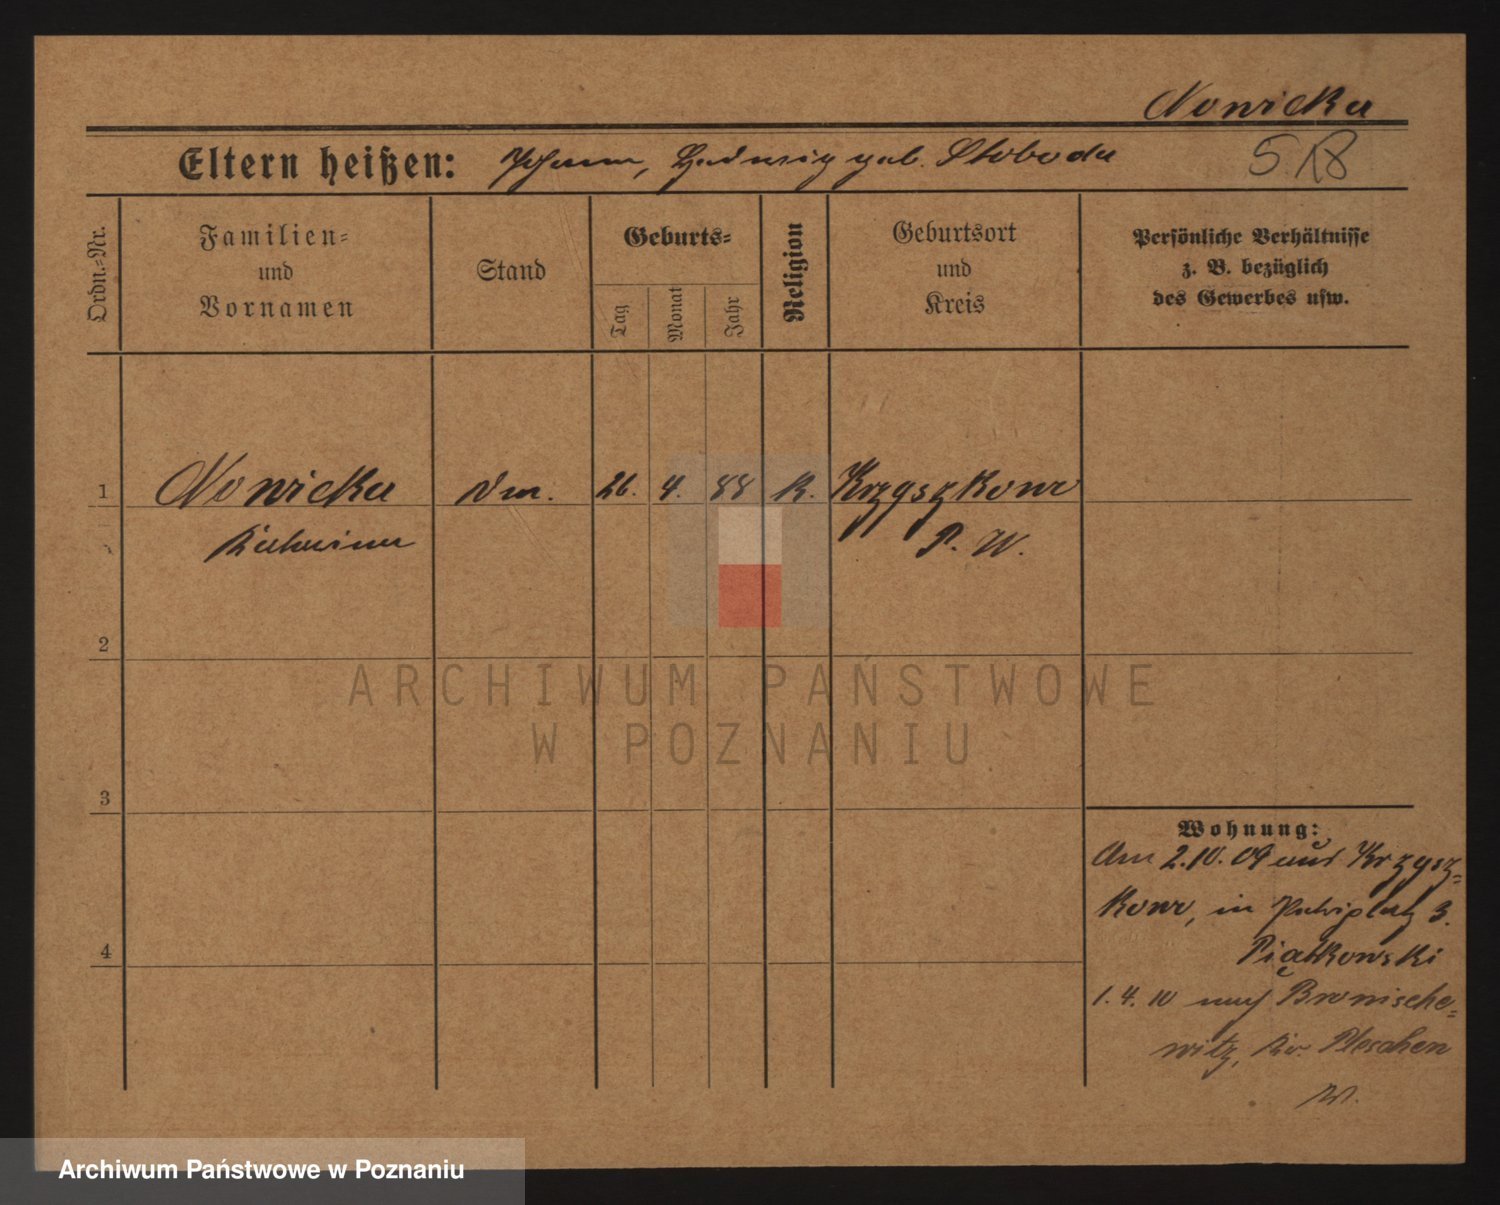 Nowicka
Eltern heißen: Johann, Hedwig geb. Sloboda
518
Ordn.-Nr.
Familien-
und
Vornamen
Stand
Geburts-
Tag
Monat
Jahr
Religion
Geburtsort
und
Kreis
Persönliche Verhältnisse
z. B. bezüglich
des Gewerbes usw.
1 Nowicka 26. 4. 88 k. Krzyszkowo
P. W.
2
3
4
Wohnung:
Am 2.10.09 aus Krzysz-
kowo, in 3.
Piątkowski
1.4.10 nach Bronische-
witz, Kr. Pleschen
ARCHIWUM PAŃSTWOWE
W POZNANIU
Archiwum Państwowe w Poznaniu